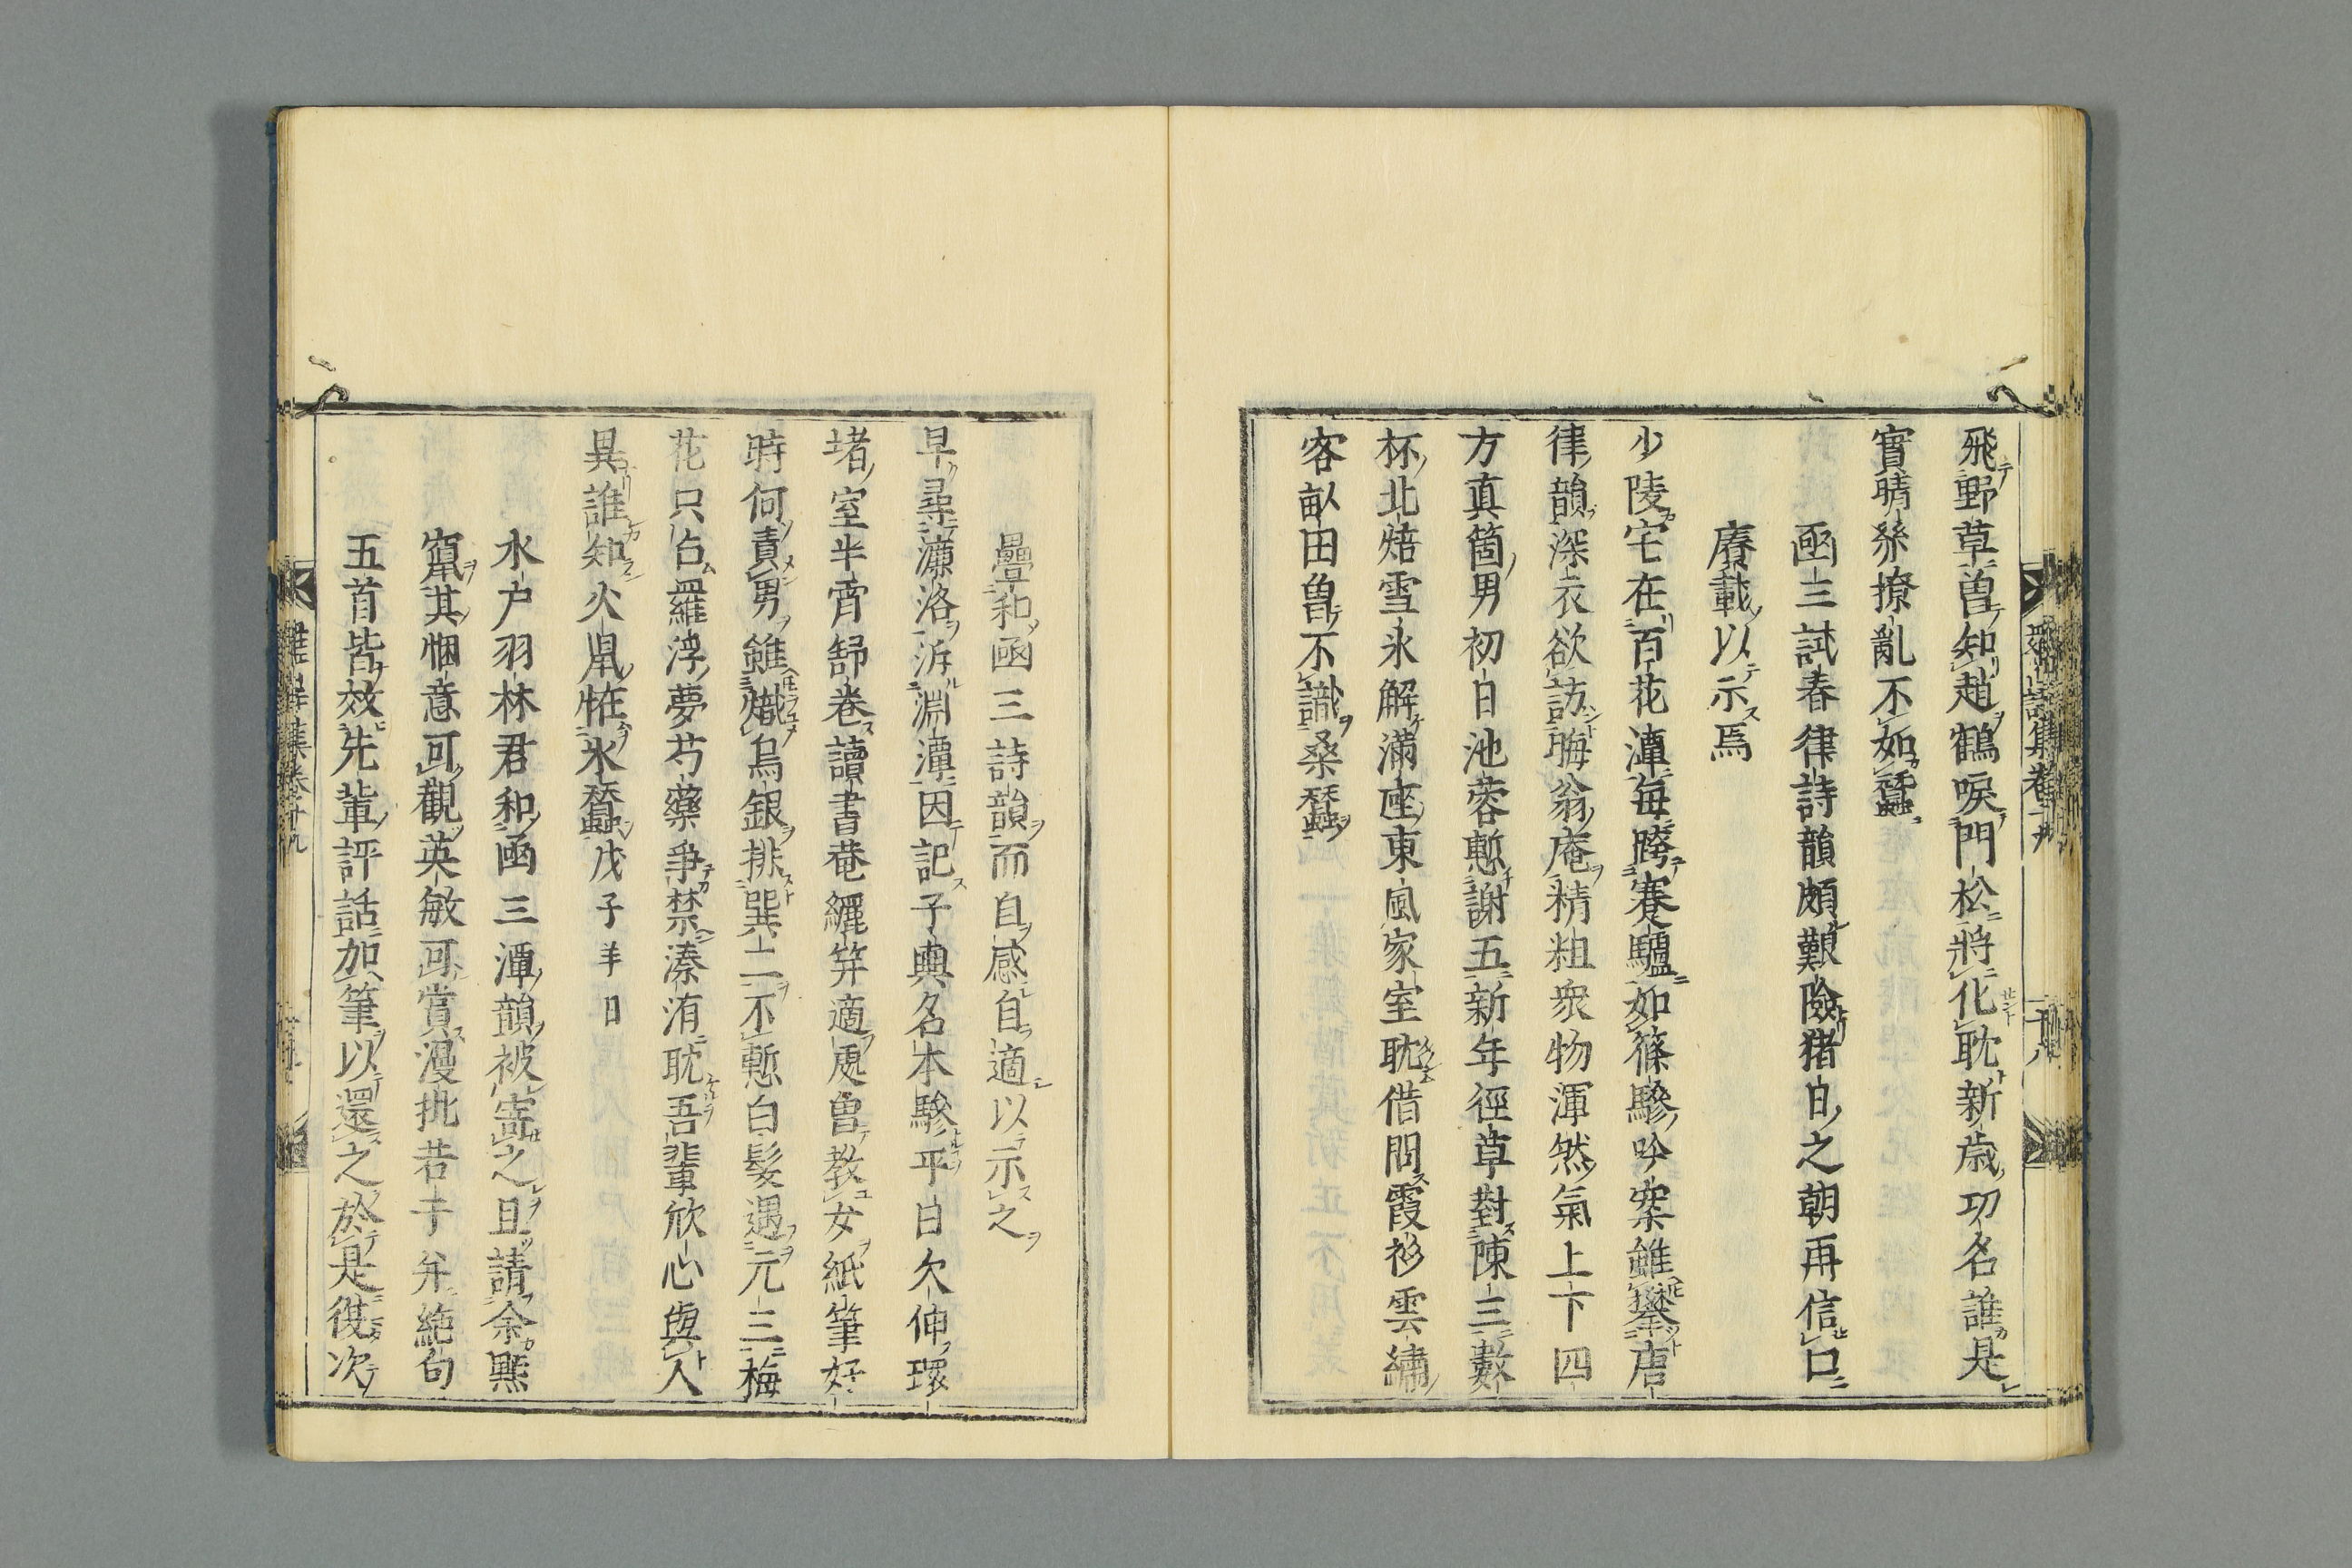 飛野草曽知趙鶴唳門松將化耽新歳功名誰是
實晴絲撩亂不如蠶
函三試春律詩韻頗艱險猪日之朝再信口
賡載以示焉
少陵宅在百花潭毎跨蹇驢如篠驂吟案雖攀唐
律韻深衣欲訪晦翁庵精粗衆物渾然氣上下四
方真箇男初日池蓉慙謝五新年徑草對陳三數
杯北焙雪氷解滿座東風家室耽借問霞衫雲繡
客畝田曽不識桑蠶
疊和函三詩韻而自感自適以示之
早尋濂洛泝淵潭因記子輿名本驂平日欠伸環
堵室半宵舒卷讀書菴纚笄適處曽教女紙筆好
時何責男雖熾烏銀排巽二不慙白髮遇元三梅
花只占羅浮夢芍藥争禁溱洧耽吾輩欣心與人
異誰知火鼠恠氷蠶 戊子羊日
水户羽林君和函三潭韻被寄之且請余㸃
竄其悃意可觀英敏可賞漫批若干并絶句
五首皆效先輩評話加筆以還之於是復次